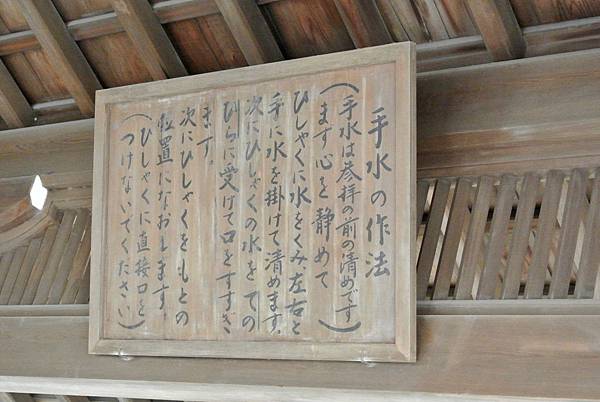 手水の作法
(手水は参拝の前の清めです)
まず心を静めて
ひしゃくに水をくみ左右と
手に水を掛けて清めます。
次にひしゃくの水をての
ひらに受けて口をすすぎ
ます。
次にひしゃくをもとの
位置になおします。
(ひしゃくに直接口を
つけないでください)